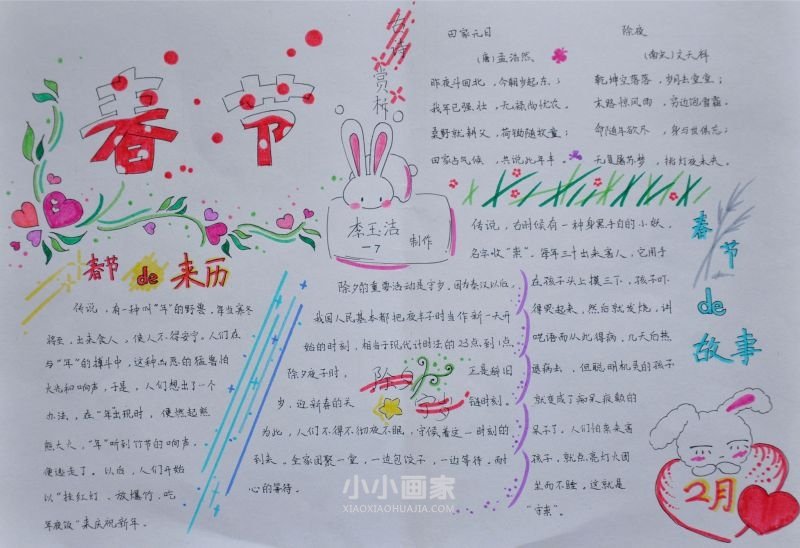 春节
古诗赏析
田家元日
(唐)孟浩然
昨夜斗回北,今朝岁起东;
我年已强壮,无禄尚忧农。
桑野就耕父,荷锄随牧童;
田家占气候,共说此年丰。
除夜
(南宋)文天祥
乾坤空落落,岁月去堂堂;
末路惊风雨,穷边饱雪霜。
命随年欲尽,身与世俱忘;
无复屠苏梦,挑灯夜未央。
李玉洁
一7
制作
春节de来历
传说,有一种叫"年"的野兽,年当寒冬
将至,出来食人,使人不得安宁。人们在
与"年"的搏斗中,这种凶恶的猛兽怕
火光和响声,于是,人们想出了一个
办法,在"年"出现时,便燃起熊
熊大火,"年"听到竹节的响声,
便逃走了。以后,人们开始
以"挂红灯、放爆竹、吃
年夜饭"来庆祝新年。
除夕的重要活动是守岁。因为秦汉以后,
我国人民基本都把夜半子时当作新一天开
始的时刻,相当于现代计时法的23点到1点。
除夕夜子时,
正是辞旧
岁、迎新春的关
链时刻。
为此,人们不得不彻夜不眠,守候着这一时刻的
到来。全家团聚一堂,一边包饺子,一边等待。耐
心的等待。
除夕
守岁
传说,古时候有一种身黑手白的小妖,
名字收"祟"。每年三十出来害人,它用手
在孩子头上摸三下,孩子吓
得哭起来,然后就发烧,讲
呓语而从此得病,几天后热
退病去,但聪明机灵的孩子
就变成了痴呆疯颠的
呆子了。人们怕祟来害
孩子,就点亮灯火团
坐而不睡。这就是
"守祟"。
春节de故事
2月
小小画家
XIAOXIAOHUAJIA.COM